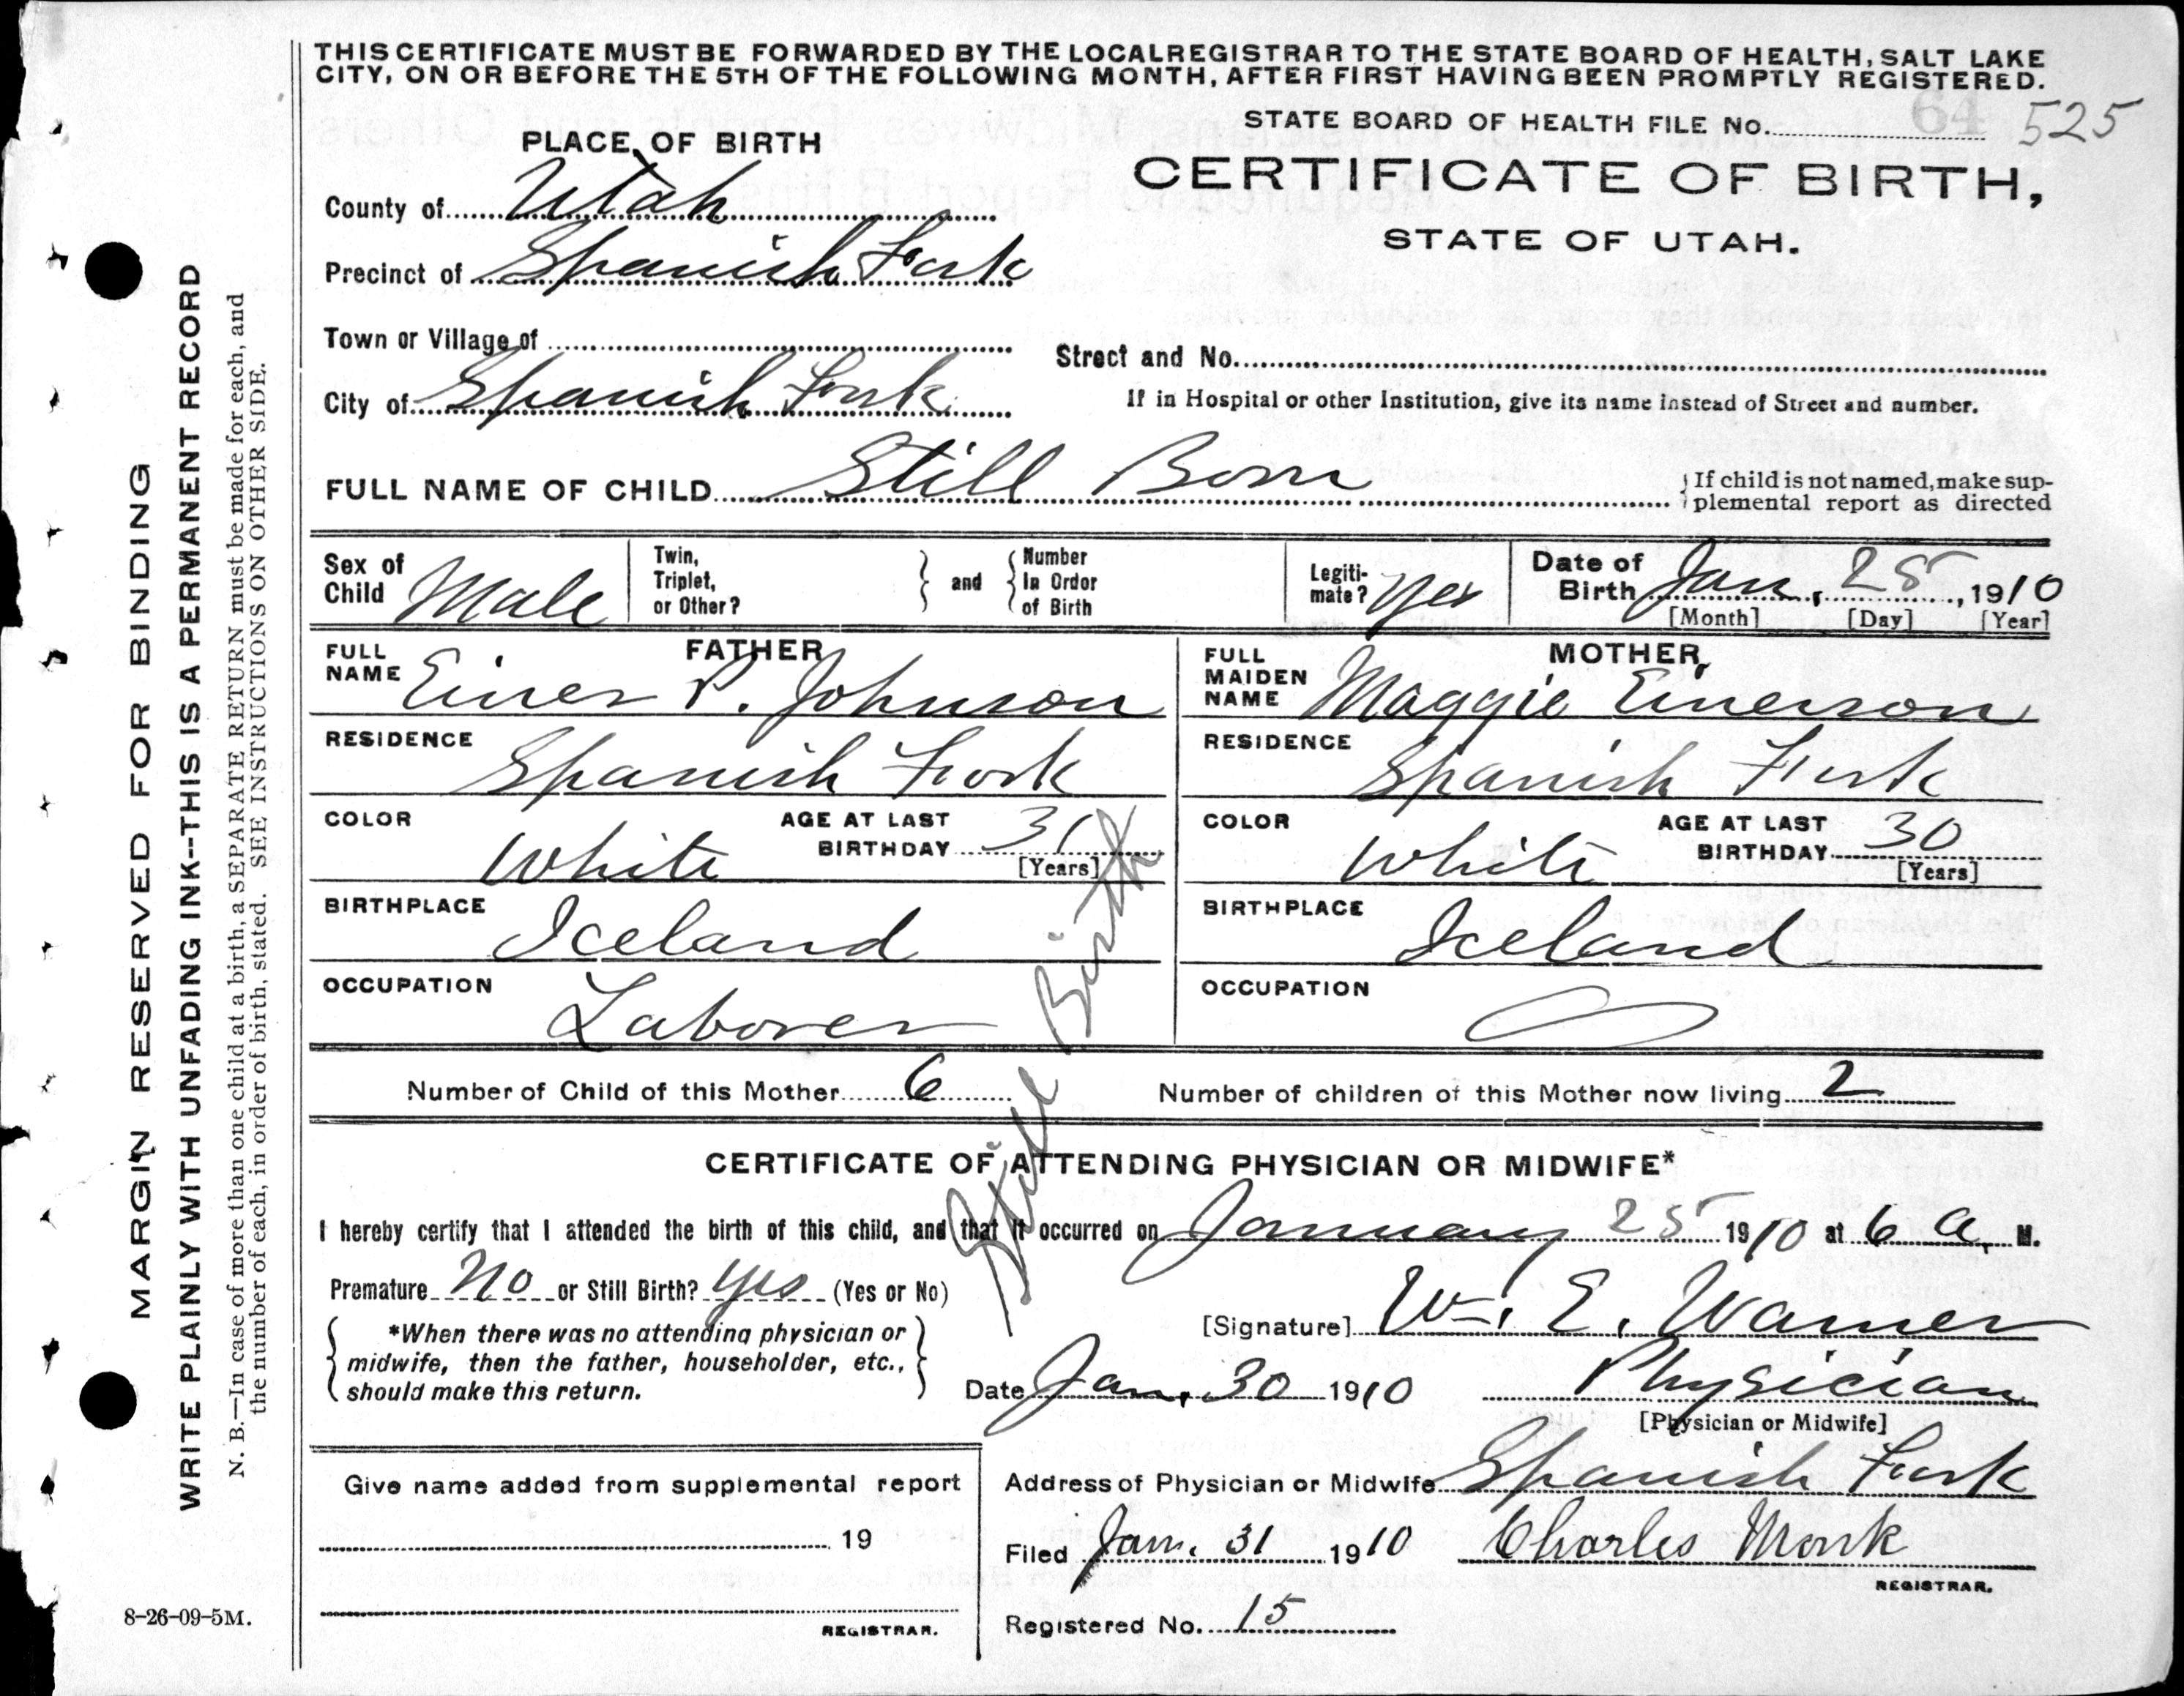 THIS CERTIFICATE MUST BE FORWARDED BY THE LOCAL REGISTRAR TO THE STATE BOARD OF HEALTH, SALT LAKE
CITY, ON OR BEFORE THE 5TH OF THE FOLLOWING MONTH, AFTER FIRST HAVING BEEN PROMPTLY REGISTERED.
STATE BOARD OF HEALTH FILE No. 64 525
PLACE OF BIRTH
CERTIFICATE OF BIRTH,
STATE OF UTAH.
County of Utah
Precinct of Spanish Fork
Town or Village of
Street and No.
City of Spanish Fork
If in Hospital or other Institution, give its name instead of Street and number.
FULL NAME OF CHILD Still Born
If child is not named, make sup-
plemental report as directed
Sex of Child Male
Twin, Triplet, or Other?
and
Number In Order of Birth
Legiti-mate? Yes
Date of Birth Jan, 25, 1910
[Month] [Day] [Year]
FATHER
FULL NAME Einer P. Johnson
RESIDENCE
Spanish Fork
COLOR White
AGE AT LAST BIRTHDAY 31 [Years]
BIRTHPLACE
Iceland
OCCUPATION
Laborer
MOTHER
FULL MAIDEN NAME Maggie Einerson
RESIDENCE
Spanish Fork
COLOR White
AGE AT LAST BIRTHDAY 30 [Years]
BIRTHPLACE
Iceland
OCCUPATION
Still Birth
Number of Child of this Mother 6
Number of children of this Mother now living 2
CERTIFICATE OF ATTENDING PHYSICIAN OR MIDWIFE*
I hereby certify that I attended the birth of this child, and that it occurred on January 25 1910 at 6 a, M.
Premature No or Still Birth? yes (Yes or No)
*When there was no attending physician or
midwife, then the father, householder, etc.,
should make this return.
[Signature] Wm. E. Warner
Date Jan, 30 1910
Physician
[Physician or Midwife]
Give name added from supplemental report
19
REGISTRAR.
Address of Physician or Midwife Spanish Fork
Filed Jan. 31 1910 Charles Monk
REGISTRAR.
Registered No. 15
MARGIN RESERVED FOR BINDING
WRITE PLAINLY WITH UNFADING INK--THIS IS A PERMANENT RECORD
N. B.—In case of more than one child at a birth, a SEPARATE RETURN must be made for each, and
the number of each, in order of birth, stated. SEE INSTRUCTIONS ON OTHER SIDE.
8-26-09-5M.